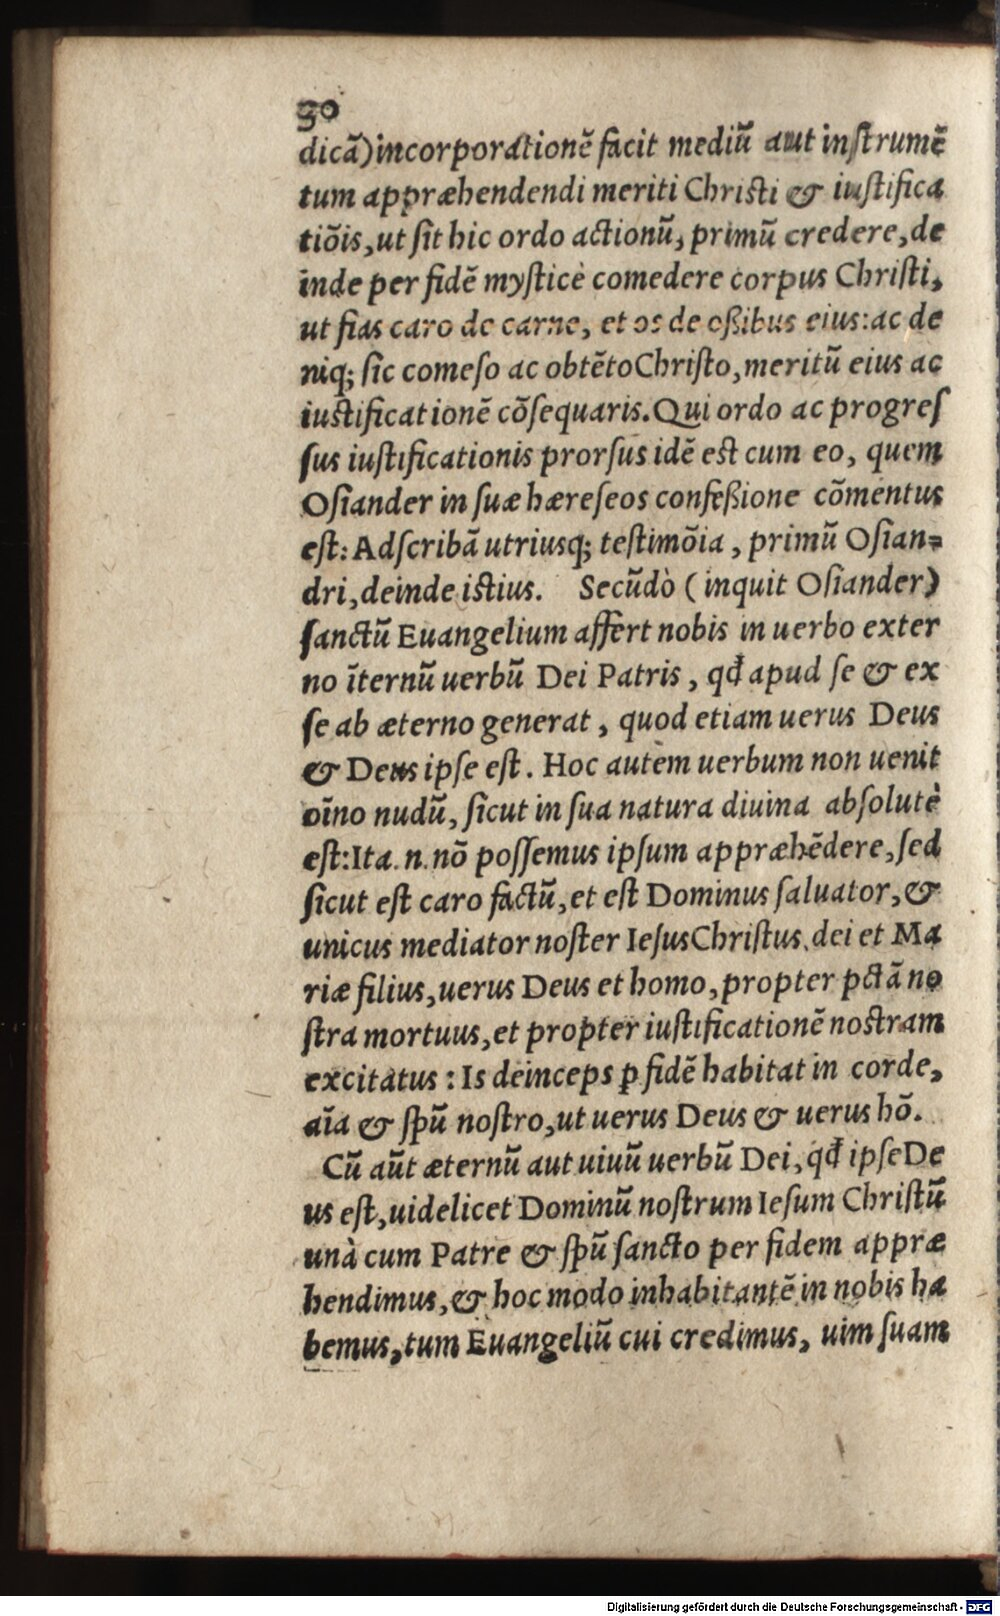 30
dicā) incorporationē facit mediū aut inſtrumē
tum appræhendendi meriti Chriſti & iuſtifica
tiōis, ut ſit hic ordo actionū, primū credere, de
inde per fidē myſticè comedere corpus Chriſti,
ut fias caro de carne, et os de oßibus eius: ac de
niq; ſic comeſo ac obtēto Chriſto, meritū eius ac
iuſtificationē cōſequaris. Qui ordo ac progreſ
ſus iuſtificationis prorſus idē eſt cum eo, quem
Oſiander in ſuæ hæreſeos confeßione cōmentus
eſt: Adſcribā utriusq; teſtimōia, primū Oſian=
dri, deinde iſtius. Secūdò (inquit Oſiander)
ſanctū Euangelium affert nobis in uerbo exter
no īternū uerbū Dei Patris, qđ apud ſe & ex
ſe ab æterno generat, quod etiam uerus Deus
& Deus ipſe eſt. Hoc autem uerbum non uenit
oīno nudū, ſicut in ſua natura diuina abſolutè
eſt: Ita .n. nō poſſemus ipſum appræhēdere, ſed
ſicut eſt caro factū, et eſt Dominus ſaluator, &
unicus mediator noſter Ieſus Chriſtus, dei et Ma
riæ filius, uerus Deus et homo, propter pctā no
ſtra mortuus, et propter iuſtificationē noſtram
excitatus: Is deinceps ꝑ fidē habitat in corde,
aīa & ſpū noſtro, ut uerus Deus & uerus hō.
Cū aūt æternū aut uiuū uerbū Dei, qđ ipſe De
us eſt, uidelicet Dominū noſtrum Ieſum Chriſtū
unà cum Patre & ſpū ſancto per fidem appræ
hendimus, & hoc modo inhabitantē in nobis ha
bemus, tum Euangeliū cui credimus, uim ſuam
Digitalisierung gefördert durch die Deutsche Forschungsgemeinschaft - DFG